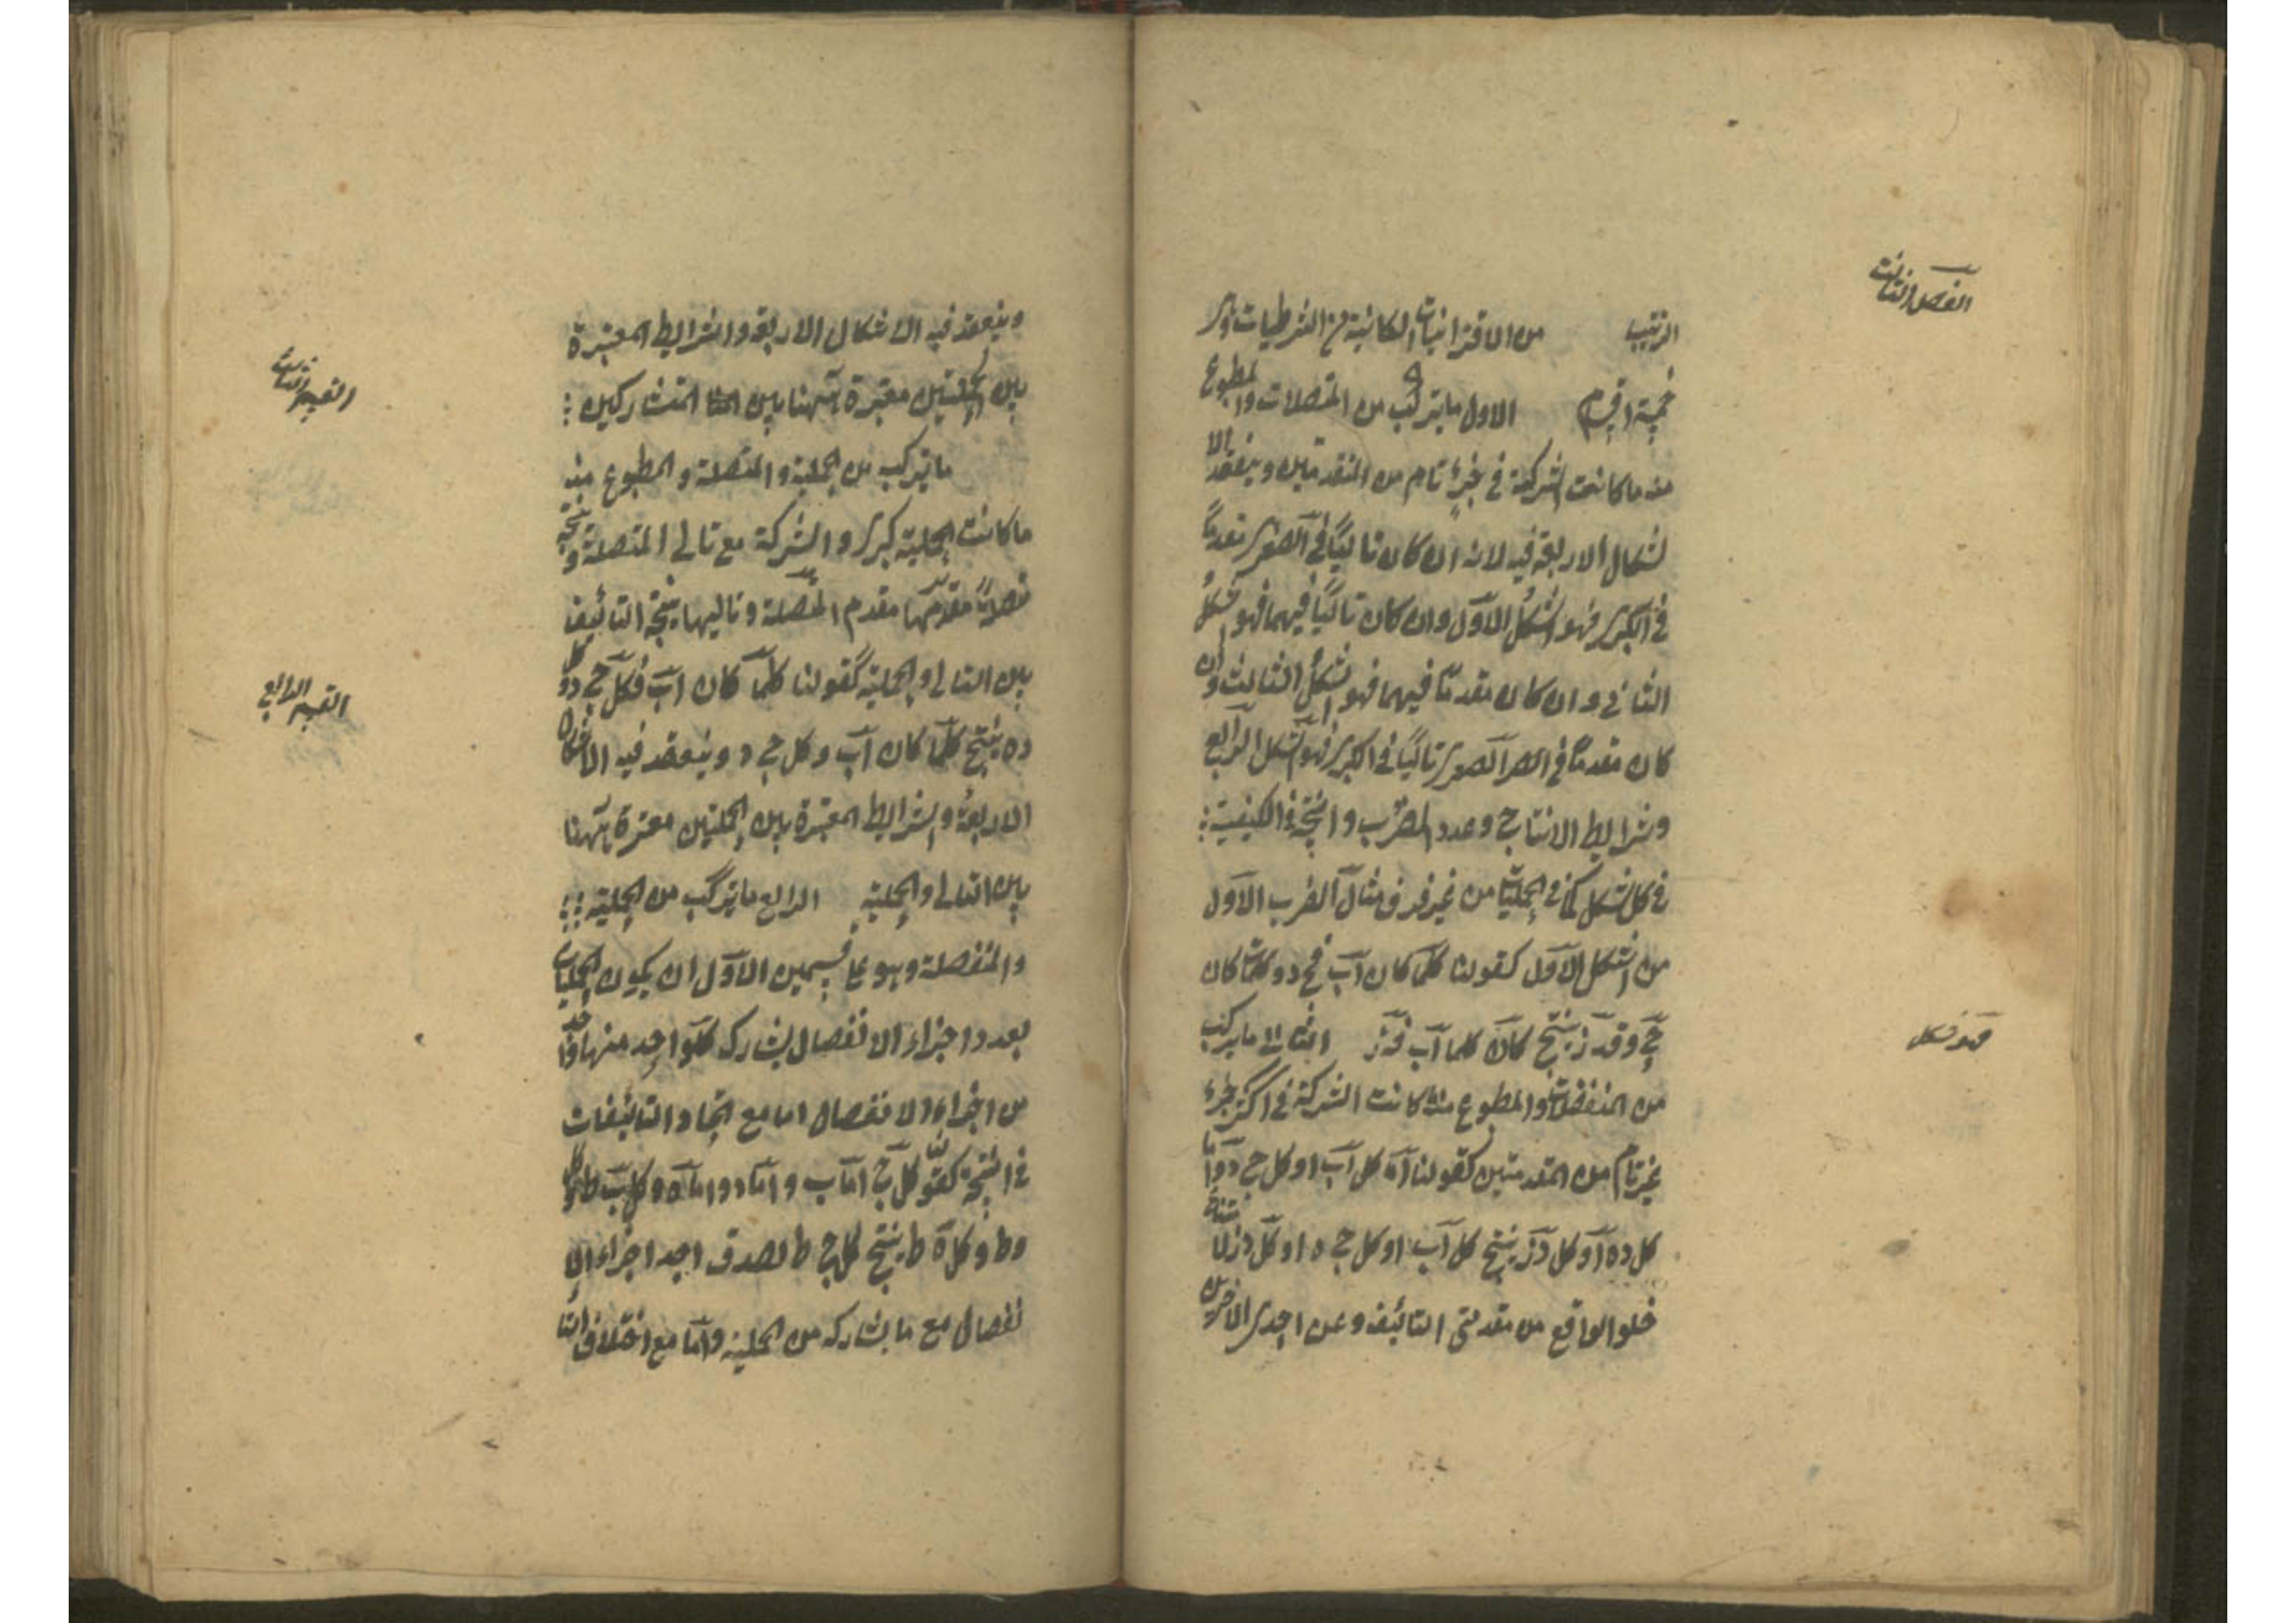 الفصل الثالث
الترتيب من الاقترانيات الكائنة من الشرطيات وهي
خمسة اقسام الاول ما يتركب من المتصلات والمطبوع
منه ما كانت الشركة في جزء تام من المقدمتين وينعقد الا
لشكال الاربعة فيه لانه ان كان تاليًا في الصغرى مقدمًا
في الكبرى فهو الشكل الاول وان كان تاليًا فيهما فهو الشكل
الثاني وان كان مقدمًا فيهما فهو الشكل الثالث وان
كان مقدمًا في الصغرى تاليًا في الكبرى فهو الشكل الرابع
وشرايط الانتاج وعدد الضرب والنتيجة في الكيفية
في كل شكل كما في الحمليات من غير فرق مثال الضرب الاول
من الشكل الاول كقولنا كلما كان اب فج د وكلما كان
ج د فه ز ينتج كلما كان اب فه ز الثاني ما يتركب
فهو شكل
من المنفصلات والمطبوع منه ما كانت الشركة في جزء
غير تام من المقدمتين كقولنا اما كل اب او كل ج د واما
كل ده او كل دز ينتج كل اب او كل ج ه او كل دز لامتناع
خلو الواقع من مقدمتي التأليف وعن احدى الاخريين
وينعقد فيه الاشكال الاربعة والشرايط المعتبرة
بين الحمليتين معتبرة ههنا بين المتشاركين
القسم الثالث
ما يتركب من الحملية والمتصلة والمطبوع منه
ما كانت الحملية كبرى والشركة مع تالي المتصلة ونتيجته
متصلة مقدمها مقدم المتصلة وتاليها نتيجة التأليف
بين التالي والحملية كقولنا كلما كان اب فكل ج د وكل
القسم الرابع
ده ينتج كلما كان اب وكل ج ه وينعقد فيه الاشكال
الاربعة والشرايط المعتبرة بين الحمليتين معتبرة ههنا
بين التالي والحملية الرابع ما يتركب من الحملية
والمنفصلة وهو على قسمين الاول ان يكون الحمليات
بعدد اجزاء الانفصال يشارك كل واحد منها واحدًا
من اجزاء الانفصال اما مع اتحاد التأليفات
في النتيجة كقولنا كل ج اما ب واما د واما ه وكل ب ط وكل
د ط وكل ه ط ينتج كل ج ط لصدق احد اجزاء الا
نفصال مع ما يشاركه من الحملية واما مع اختلاف التا